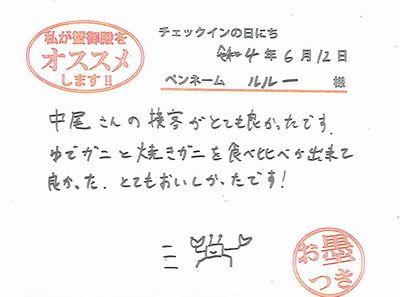 私が蟹御殿を
オススメ
します!!
チェックインの日にち
令和4年6月12日
ペンネーム ルルー 様
中尾さんの接客がとても良かったです.
ゆでガニと焼きガニを食べ比べが出来て
良かった.とてもおいしかったです!
お墨
つき